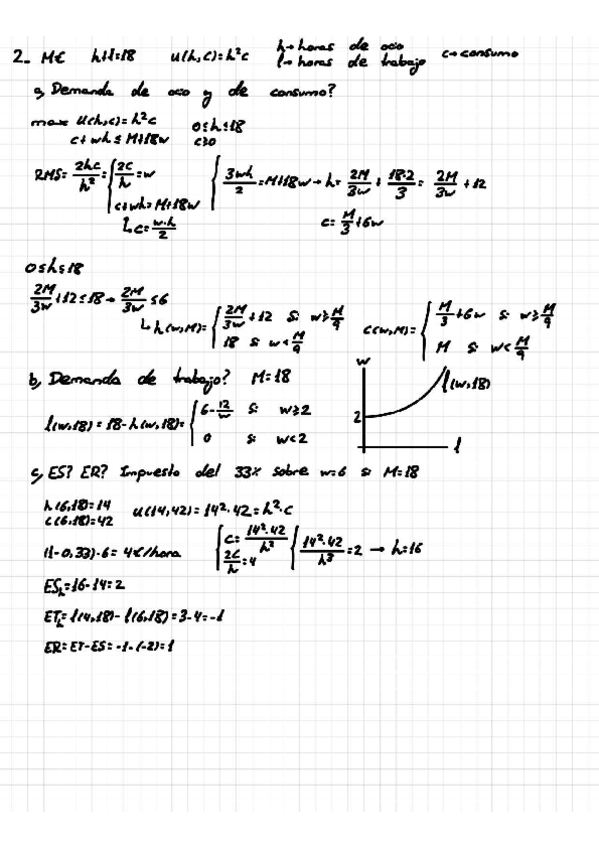 2. M€ h+l=18 u(h,c)=h²c h→horas de ocio c→consumo
l→horas de trabajo
a) Demanda de ocio y de consumo?
max u(h,c)=h²c 0≤h≤18
c+wh≤M+18w c≥0
RMS= 2hc/h² = { 2c/h = w { 3wh/2 = M+18w → h= 2M/3w + 18·2/3 = 2M/3w + 12
c+wh=M+18w
↳ c= w·h/2 c= M/3 + 6w
0≤h≤18
2M/3w + 12 ≤ 18 → 2M/3w ≤ 6
↳ h(w,M)= { 2M/3w + 12 si w≥ M/9 c(w,M)= { M/3 + 6w si w≥ M/9
18 si w< M/9 M si w< M/9
b) Demanda de trabajo? M=18
l(w,18) = 18-h(w,18)= { 6- 12/w si w≥2
0 si w<2
w
l(w,18)
2
l
c) ES? ER? Impuesto del 33% sobre w=6 si M=18
h(6,18)=14
c(6,18)=42
u(14,42)=14²·42=h²·c
(1-0,33)·6= 4€/hora { c= 14²·42/h² { 14²·42/h³ =2 → h=16
2c/h =4
ESₕ=16-14=2
ETₕ= l(4,18)- l(6,18)=3-4=-1
ER= ET-ES= -1-(-2)=1